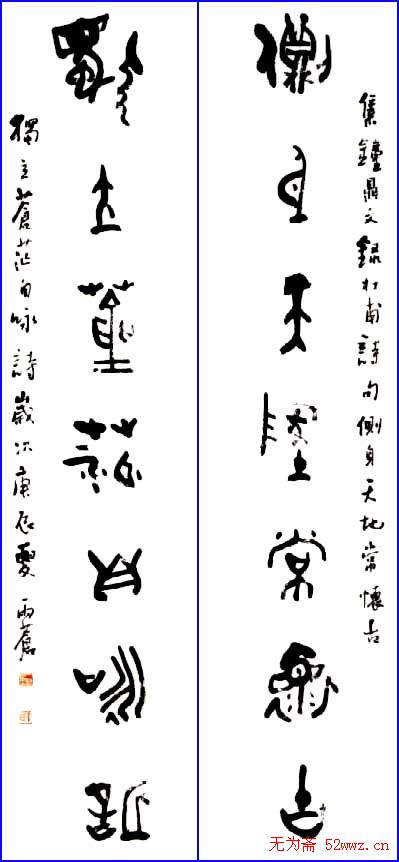 集鐘鼎文錄杜甫詩句側身天地常懷古
側身天地常懷古
獨立蒼茫自咏詩
獨立蒼茫自咏詩歲次庚辰夏雨蒼
无为斋 52wwz.cn